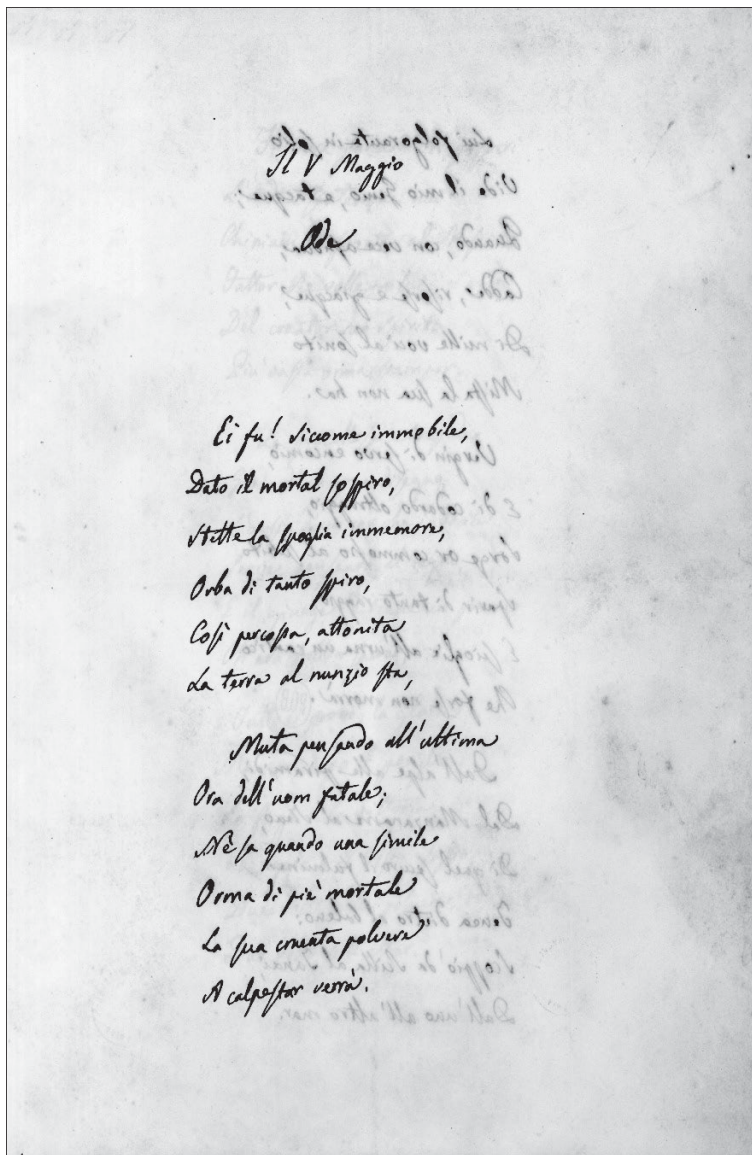 Il V Maggio
Ode
Ei fu! Siccome immobile,
Dato il mortal sospiro,
Stette la spoglia immemore,
Orba di tanto spiro,
Così percossa, attonita
La terra al nunzio sta,
Muta pensando all'ultima
Ora dell'uom fatale;
Nè sa quando una simile
Orma di piè mortale
La sua cruenta polvere
A calpestar verrà.